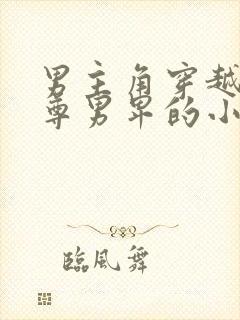 男主角穿越
尊男卑的小
臨風舞